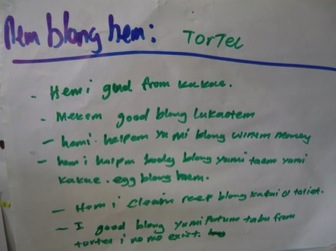 Nem blong hem: TorTel
- Hemi gud from kakae.
- Mekem good blong lukaotem
- hemi halpem yumi blong winim money
- hem i halpm body blong yumi taem yumi
kakae. egg blong hem.
- Hem i cleanim reef blong kakai o toilet.
- I good blong yumi Putum tabu from
tortel i no mo exist.